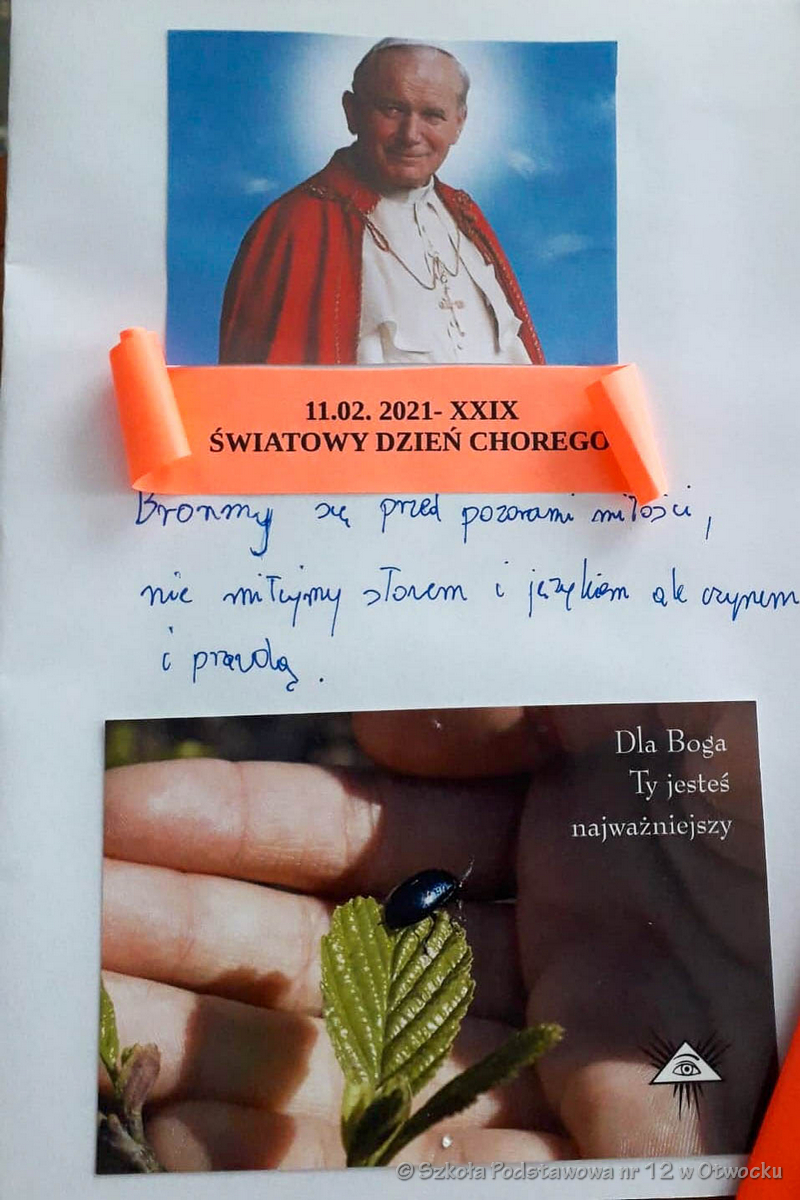 11.02. 2021- XXIX
ŚWIATOWY DZIEŃ CHOREGO
Brońmy się przed pozorami miłości,
nie miłujmy słowem i językiem ale czynem
i prawdą.
Dla Boga
Ty jesteś
najważniejszy
© Szkoła Podstawowa nr 12 w Otwocku